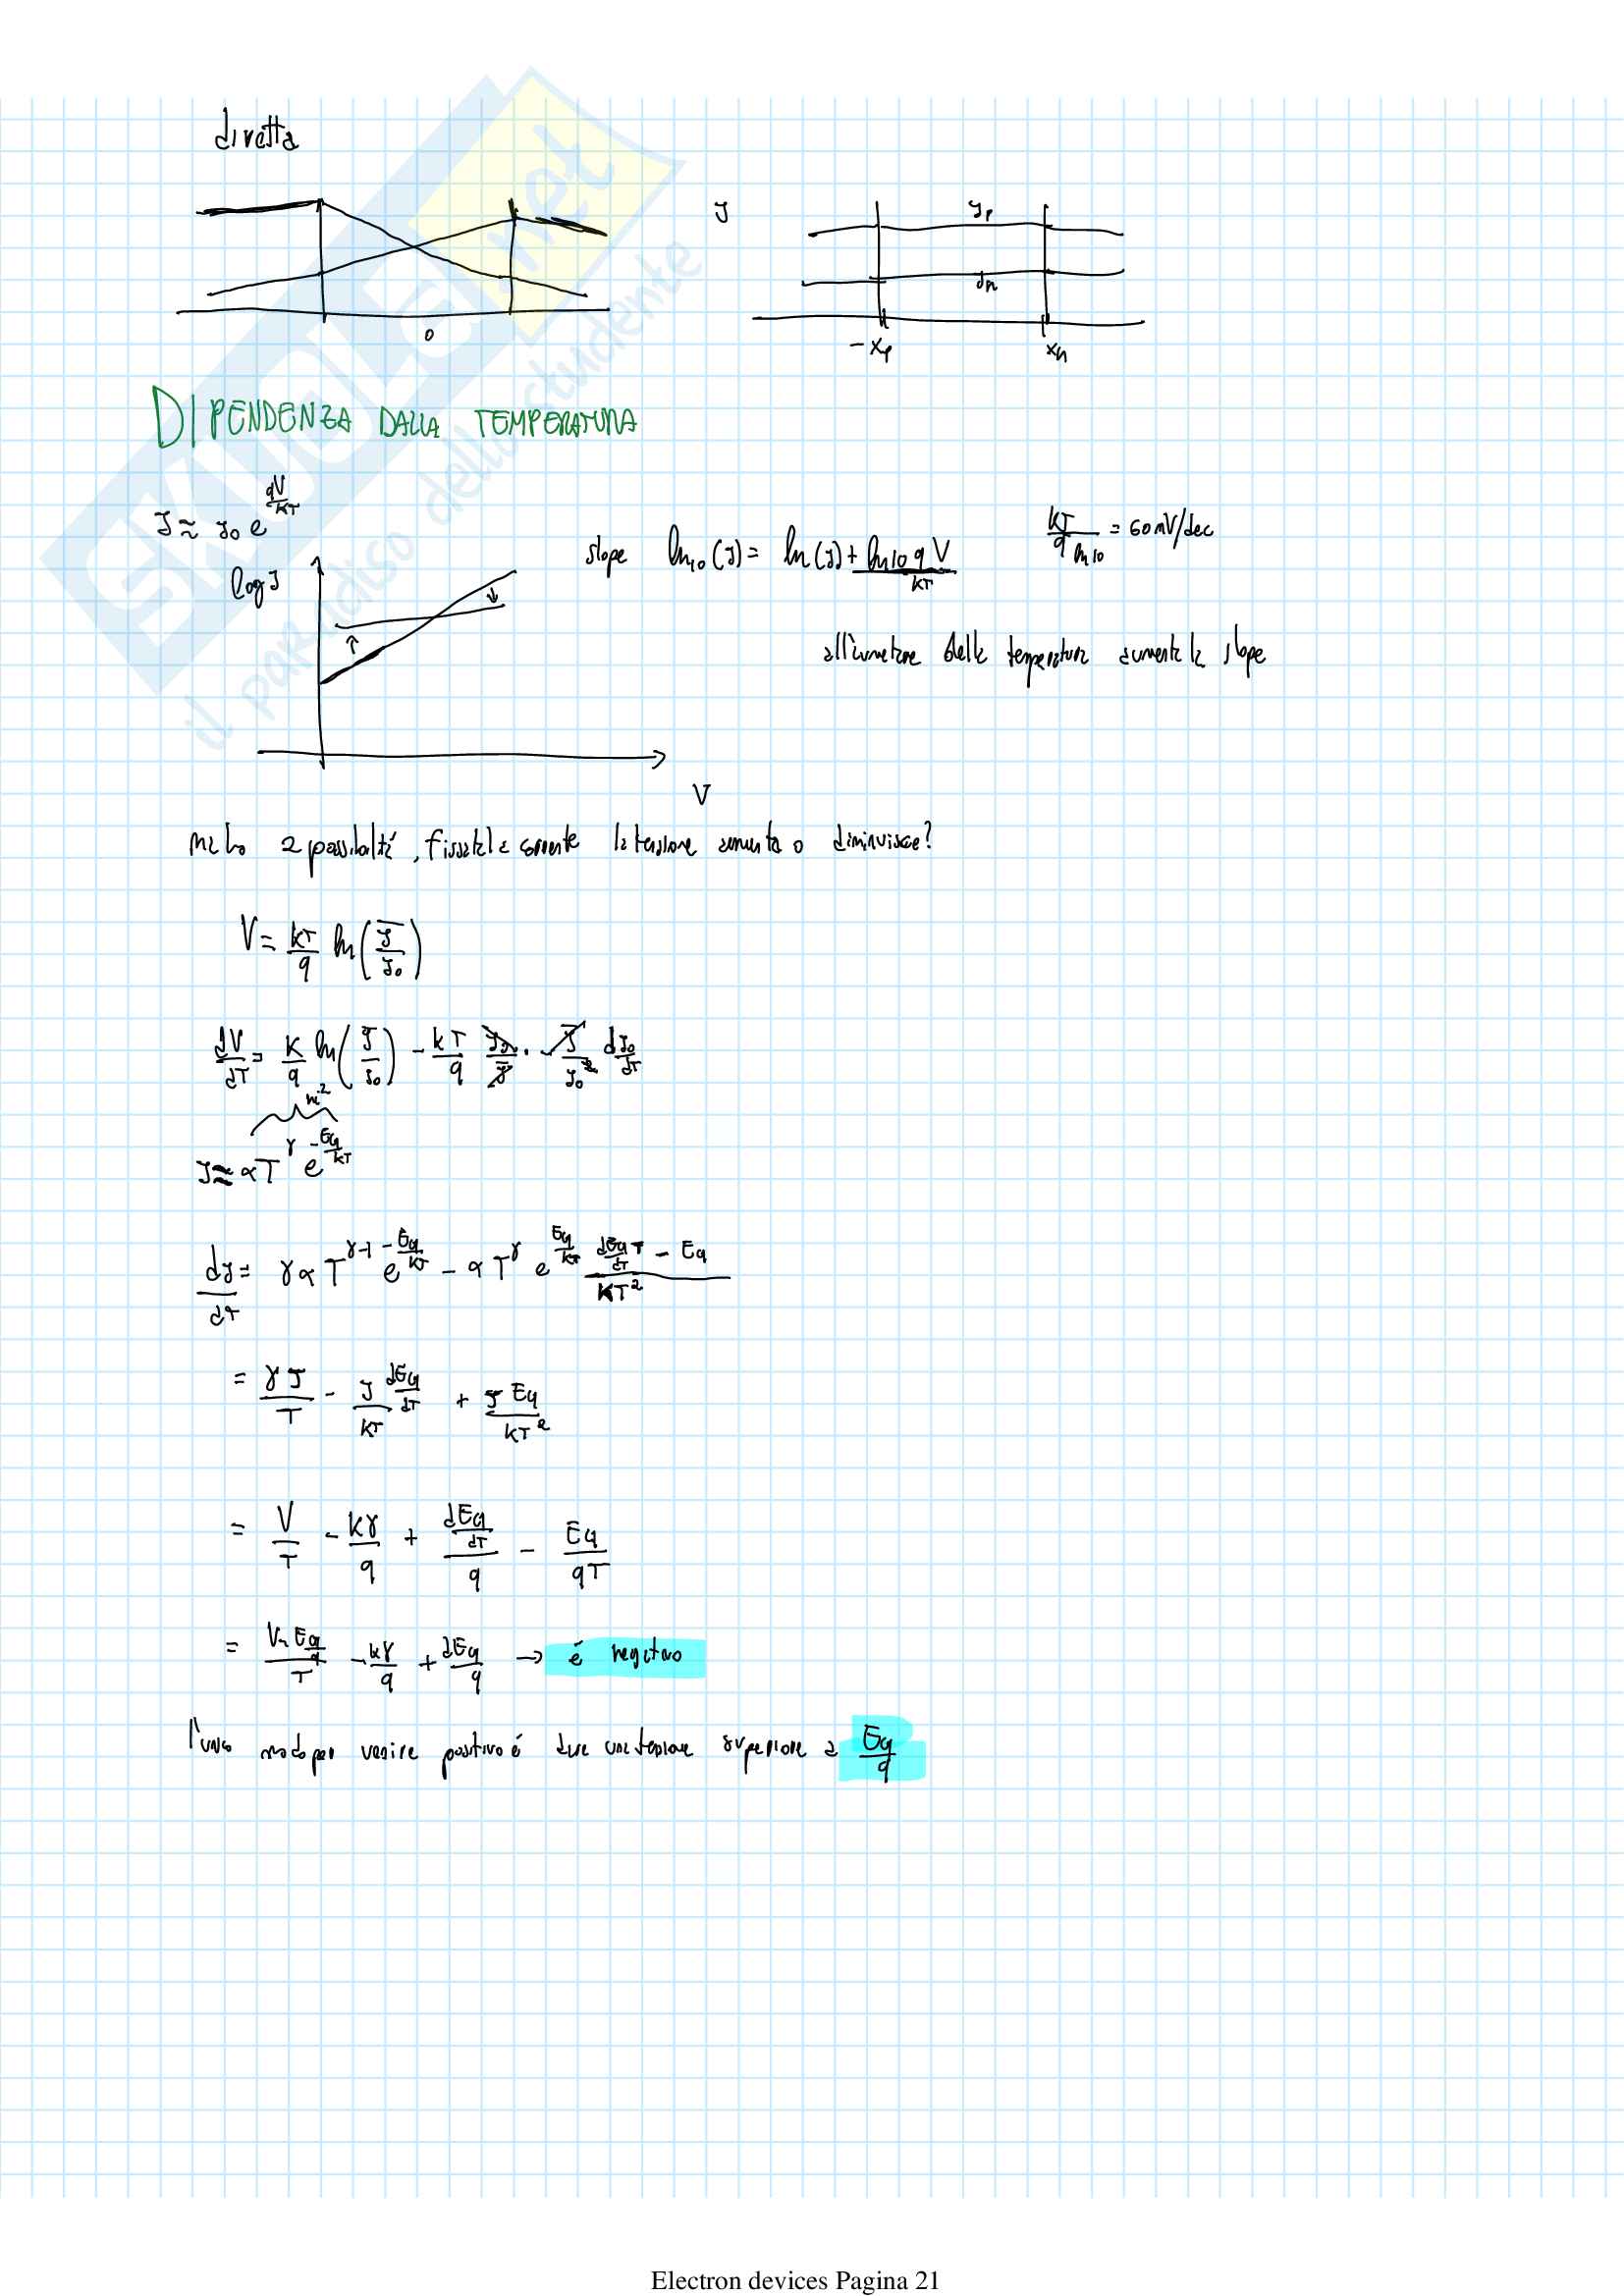 diretta
J Jp
Jn
0 -xp xn
DIPENDENZA DALLA TEMPERATURA
J ≈ J₀ e^(qV/KT)
slope ln₁₀(J) = ln(J) + ln10 q V / KT
KT/q ln10 = 60mV/dec
log J
all'aumentare della temperatura aumenta la slope
V
ma ho 2 possibilità, fissata la corrente la tensione aumenta o diminuisce?
V = KT/q ln(J/J₀)
dV/dT = K/q ln(J/J₀) - KT/q J₀/J · - J/J₀² dJ₀/dT
ni²
J ≈ αT^γ e^(-Eg/KT)
dJ/dT = γαT^(γ-1) e^(-Eg/KT) - αT^γ e^(Eg/KT) (dEg/dT T - Eg)/KT²
= γJ/T - J/KT dEg/dT + J Eg/KT²
= V/T - Kγ/q + (dEg/dT)/q - Eg/qT
= (V - Eg/q)/T - Kγ/q + dEg/q → é negativo
l'unico modo per venire positivo é dare una tensione superiore a Eg/q
SKUOLA.net
il paradiso dello studente
Electron devices Pagina 21